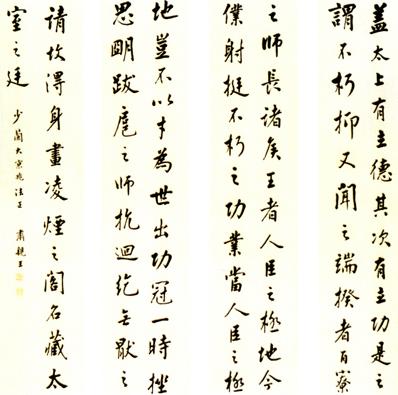 蓋太上有立德其次有立功是之
謂不朽抑又聞之端揆者百寮
之師長諸侯王者人臣之極地今
僕射挺不朽之功業當人臣之極
地豈不以才為世出功冠一時挫
思明跋扈之師抗迴紇无猒之
請故得身畫凌煙之閣名藏太
室之廷
少蘭大京兆法正 肅親王